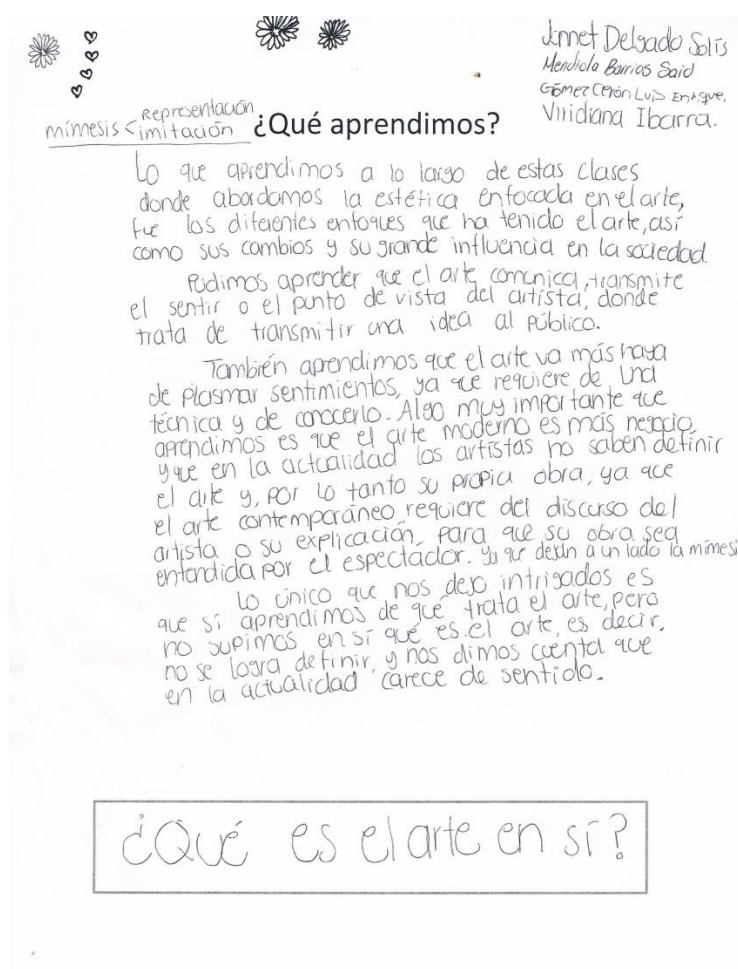 Jannet Delgado Solís
Mendiola Barrios Said
Gómez Cerón Luis Enrique.
Viridiana Ibarra.
mímesis < Representación
imitación.
¿Qué aprendimos?
Lo que aprendimos a lo largo de estas clases
donde abordamos la estética enfocada en el arte,
fue los diferentes enfoques que ha tenido el arte, así
como sus cambios y su grande influencia en la sociedad.
Pudimos aprender que el arte comunica, transmite
el sentir o el punto de vista del artísta, donde
trata de transmitir una idea al público.
También aprendimos que el arte va más haya
de plasmar sentimientos, ya que requiere de una
técnica y de conocerlo. Algo muy importante que
aprendimos es que el arte moderno es más negocio,
y que en la actualidad los artístas no saben definir
el arte y, por lo tanto su propia obra, ya que
el arte contemporáneo requiere del discurso del
artista o su explicación, para que su obra sea
entendida por el espectador. Ya que dejan a un lado la mímesi
Lo único que nos dejo intrigados es
que sí aprendimos de qué trata el arte, pero
no supimos en sí qué es el arte, es decir,
no se logra definir, y nos dimos cuenta que
en la actualidad carece de sentido.
¿Qué es el arte en sí?